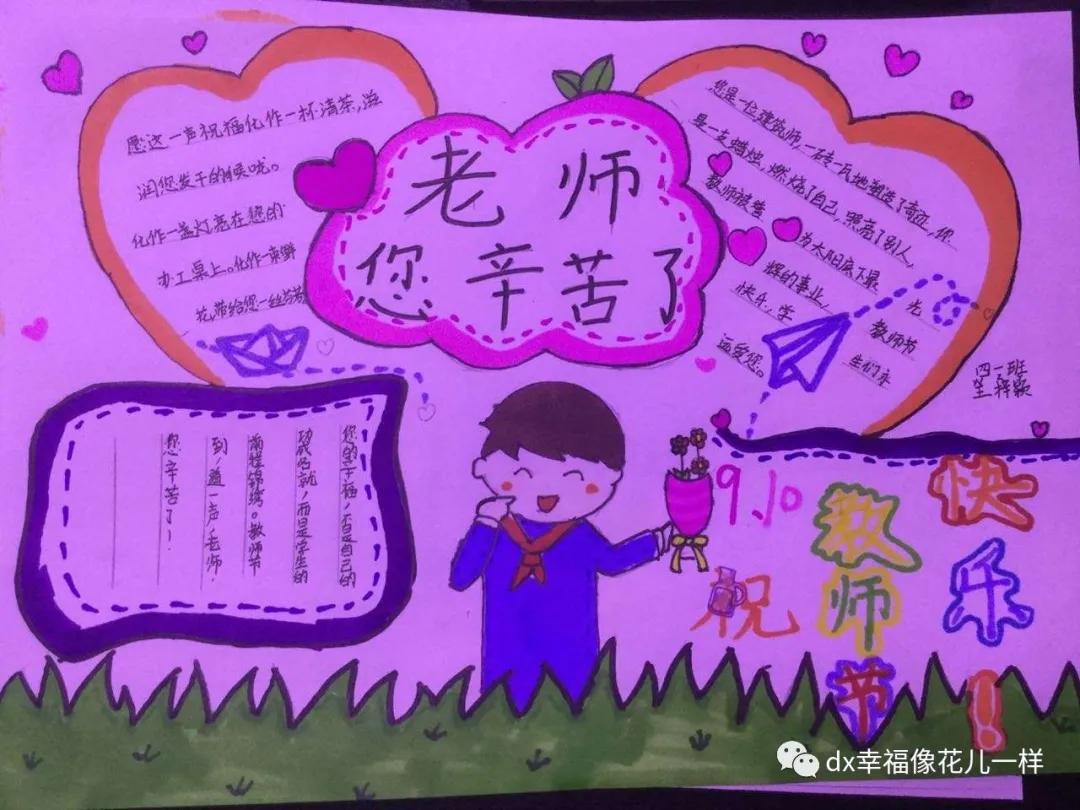 老师
您辛苦了
愿这一声祝福化作一杯清茶，滋
润您发干的喉咙。
化作一盏灯亮在您的
办工桌上。化作一束鲜
花，带给您一丝芬芳
您是一位建筑师，一砖一瓦地塑造了奇迹，你
是一支蜡烛，燃烧了自己，照亮了别人，
教师被誉 为太阳底下最 光
辉的事业， 教师节
快乐，学 生们永
远爱您。
四一班
您的幸福，不是自己的
功成名就，而是学生的
前程锦绣。教师节
到，道一声：老师，
您辛苦了！
9.10
祝
教师节
快乐！
dx幸福像花儿一样